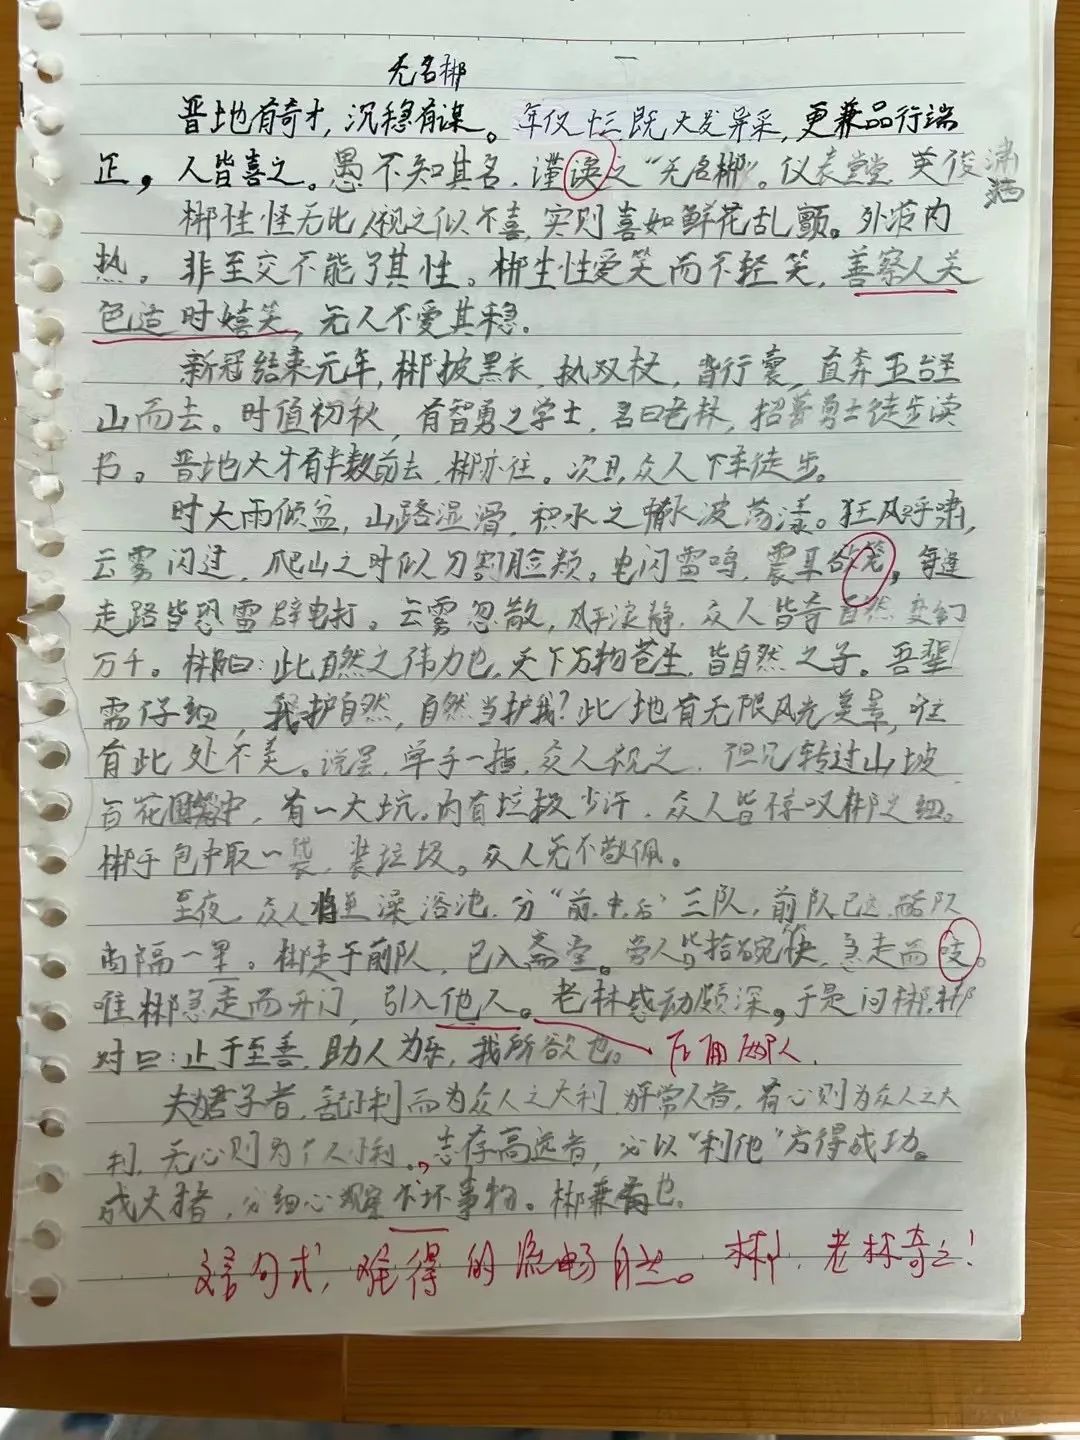 无名郴
晋地有奇才,沉稳有谋。年仅十三既大发异采,更兼品行端
正,人皆喜之。愚不知其名,谨误之“无名郴”。仪表堂堂 英俊潇洒
郴性怪无比,人视之似不喜,实则喜如鲜花乱颤。外冷内
热。非至交不能了其性。郴生性爱笑而不轻笑,善察人关
色适时嬉笑,无人不爱其稳.
新冠结束元年,郴披黑衣,执双杖,背行囊,直奔五台
山而去。时值初秋,有智勇之学士,名曰老林,招募勇士徒步读
书。晋地大才有半数前去,郴亦往。次日,众人下车徒步。
时大雨倾盆,山路湿滑,积水之 水波荡漾。狂风呼啸,
云雾闪过,爬山之时似刀割脸颊。电闪雷鸣,震耳欲 ,每逢
走路皆恐雷辟电打。云雾忽散,风平浪静,众人皆奇自然变幻
万千。郴曰:此自然之伟力也,天下万物苍生,皆自然之子。吾辈
需仔细,我护自然,自然当护我?此地有无限风光美景,唯
有此处不美。说罢,单手一指,众人视之,但见转过山坡
百花 中,有一大坑。内有垃圾少许,众人皆惊叹郴之细。
郴于包中取一袋,装垃圾。众人无不敬佩。
至夜,众人将至澡浴池,分“前,中,后”三队,前队已达, 队
尚隔一里。郴走于前队,已入斋堂。旁人皆拾碗筷,急走而吱。
唯郴急走而开门,引入他人。老林感动颇深,于是问郴,郴
对曰:止于至善,助人为乐,我所欲也。 后面两队.
夫君子者, 小利而为众人之大利,好常人者,有心则为众人之大
利,无心则为个人小利。志存高远者,必以“利他”方得成功。
成大猪,必细心观察不坏事物。郴兼有也。
文言句式,难得的流畅自然。郴,老林奇之!